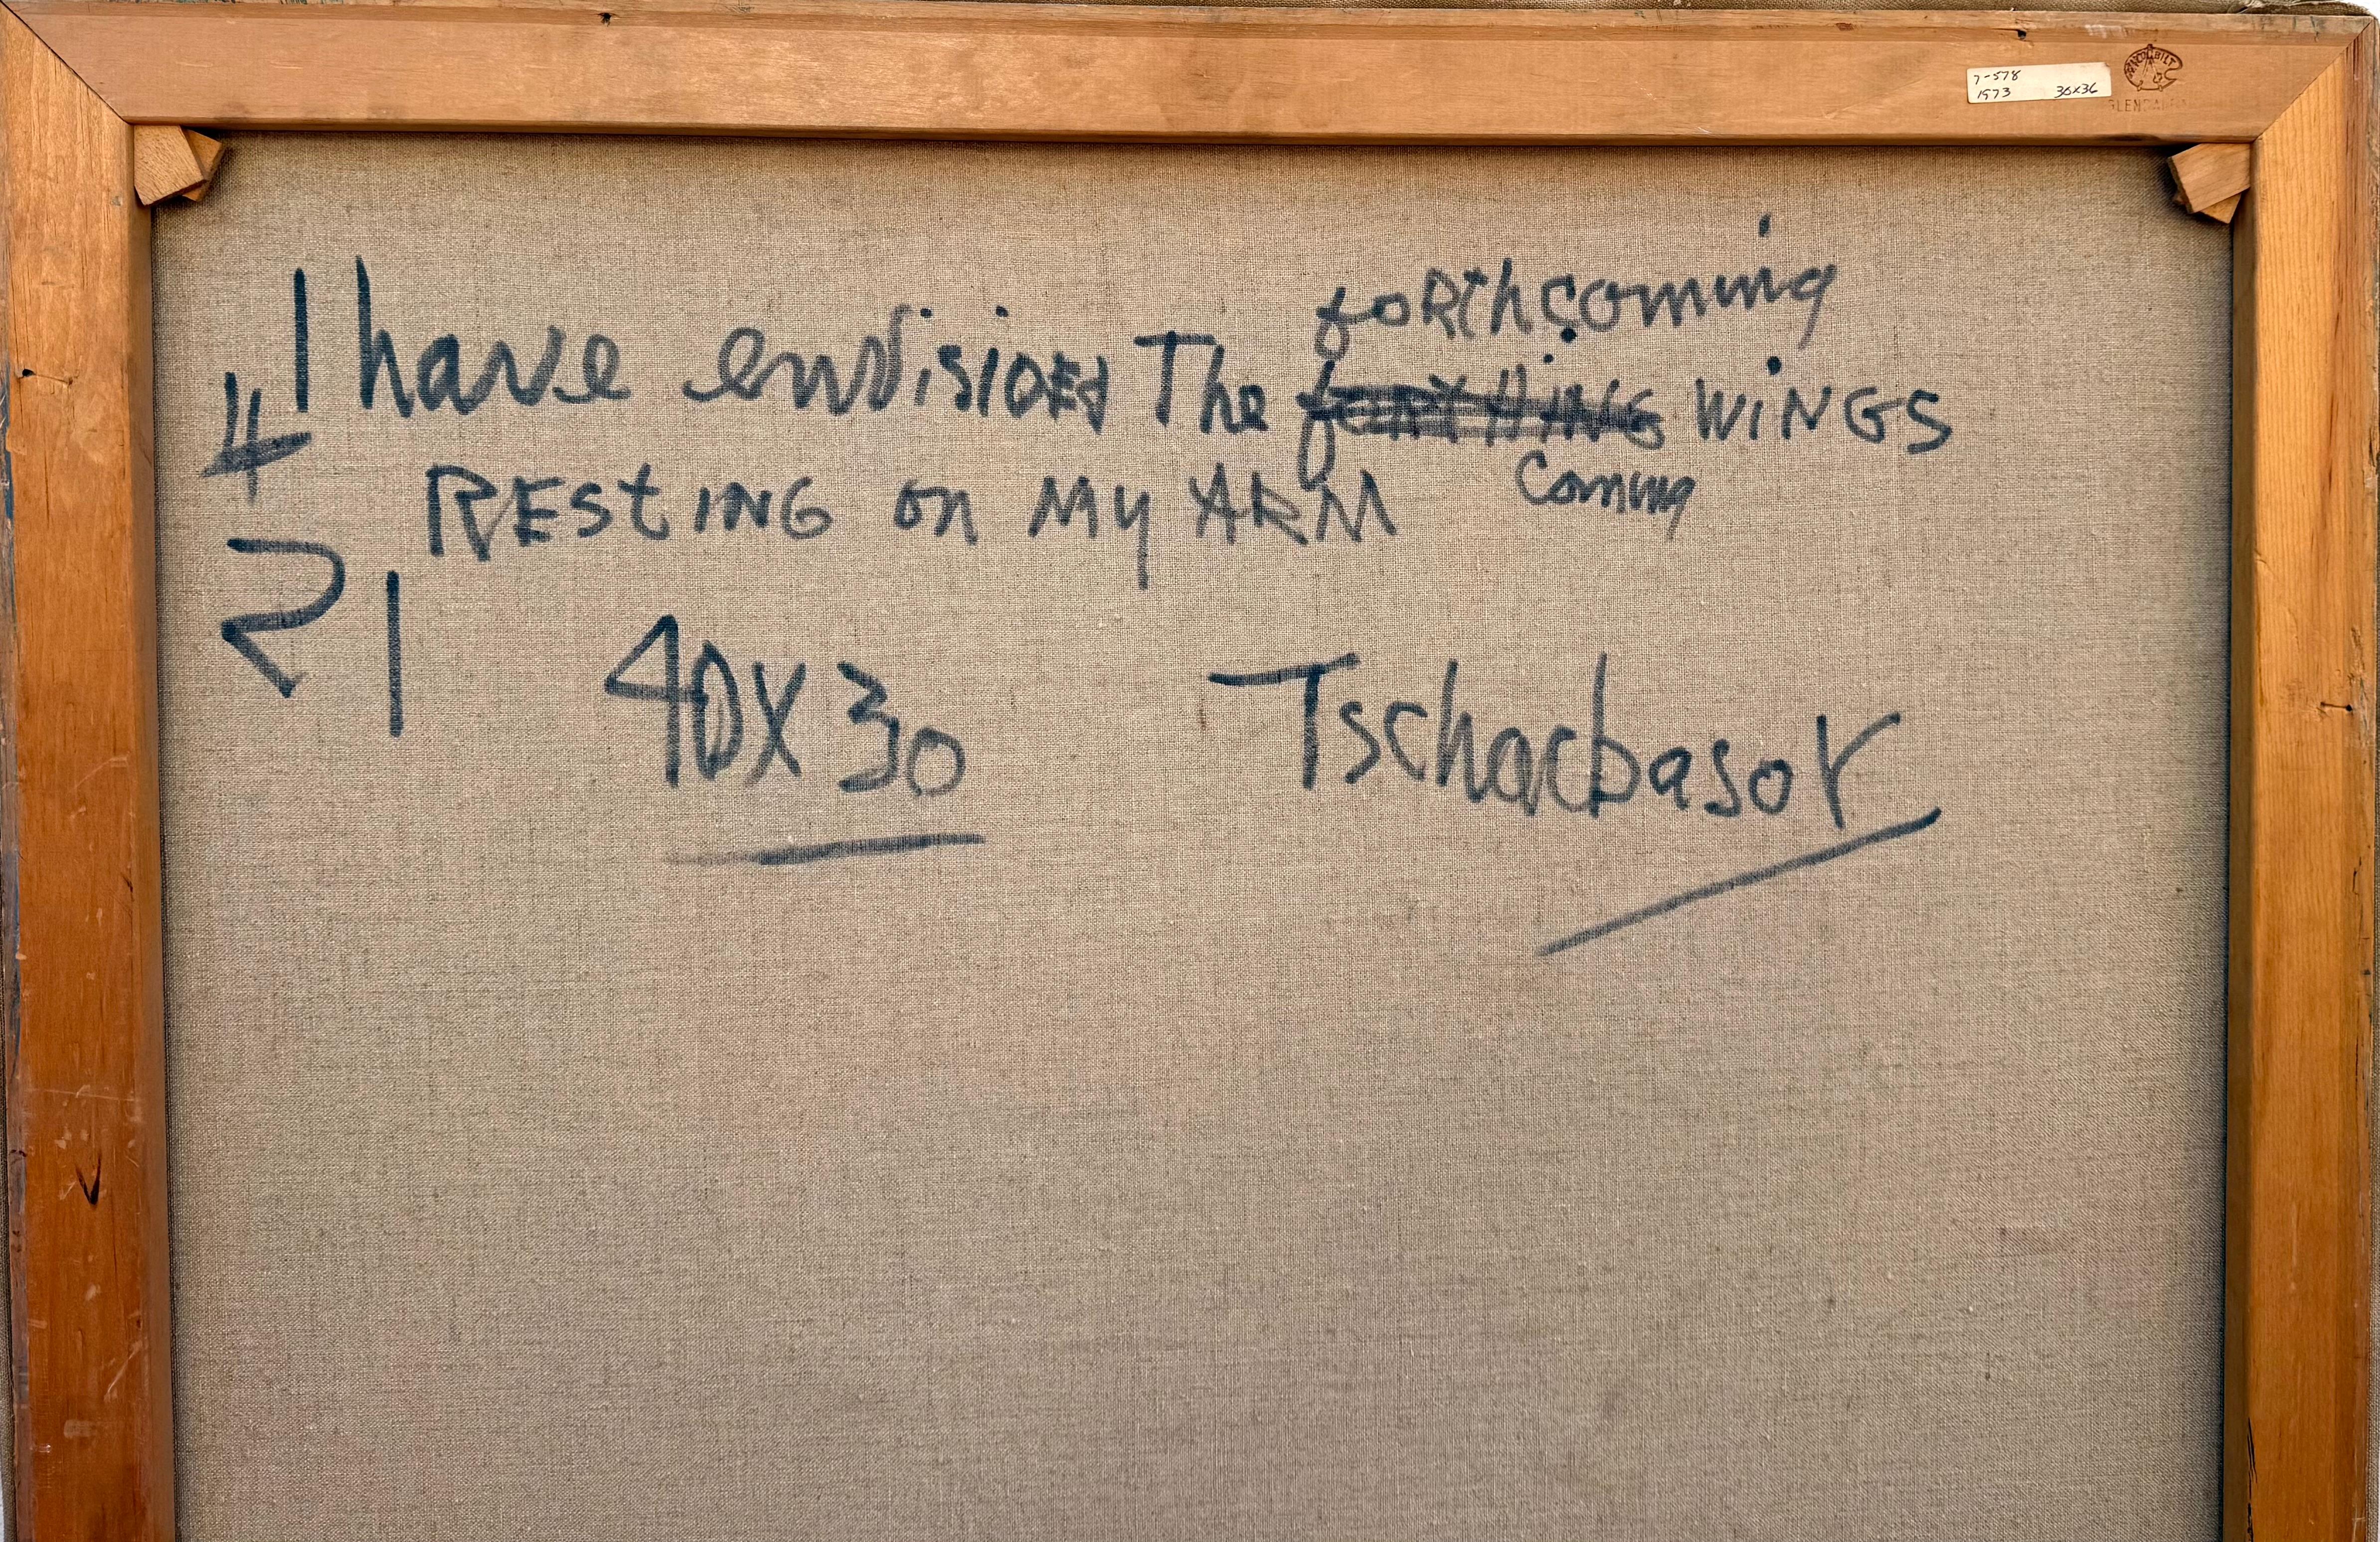 7-578
1973 30x36
ANCO BILT
GLENDALE
forthcoming
I have envisioed The WiNGS
4 RESTING on My ARM Coming
21
40X30 Tschacbasov